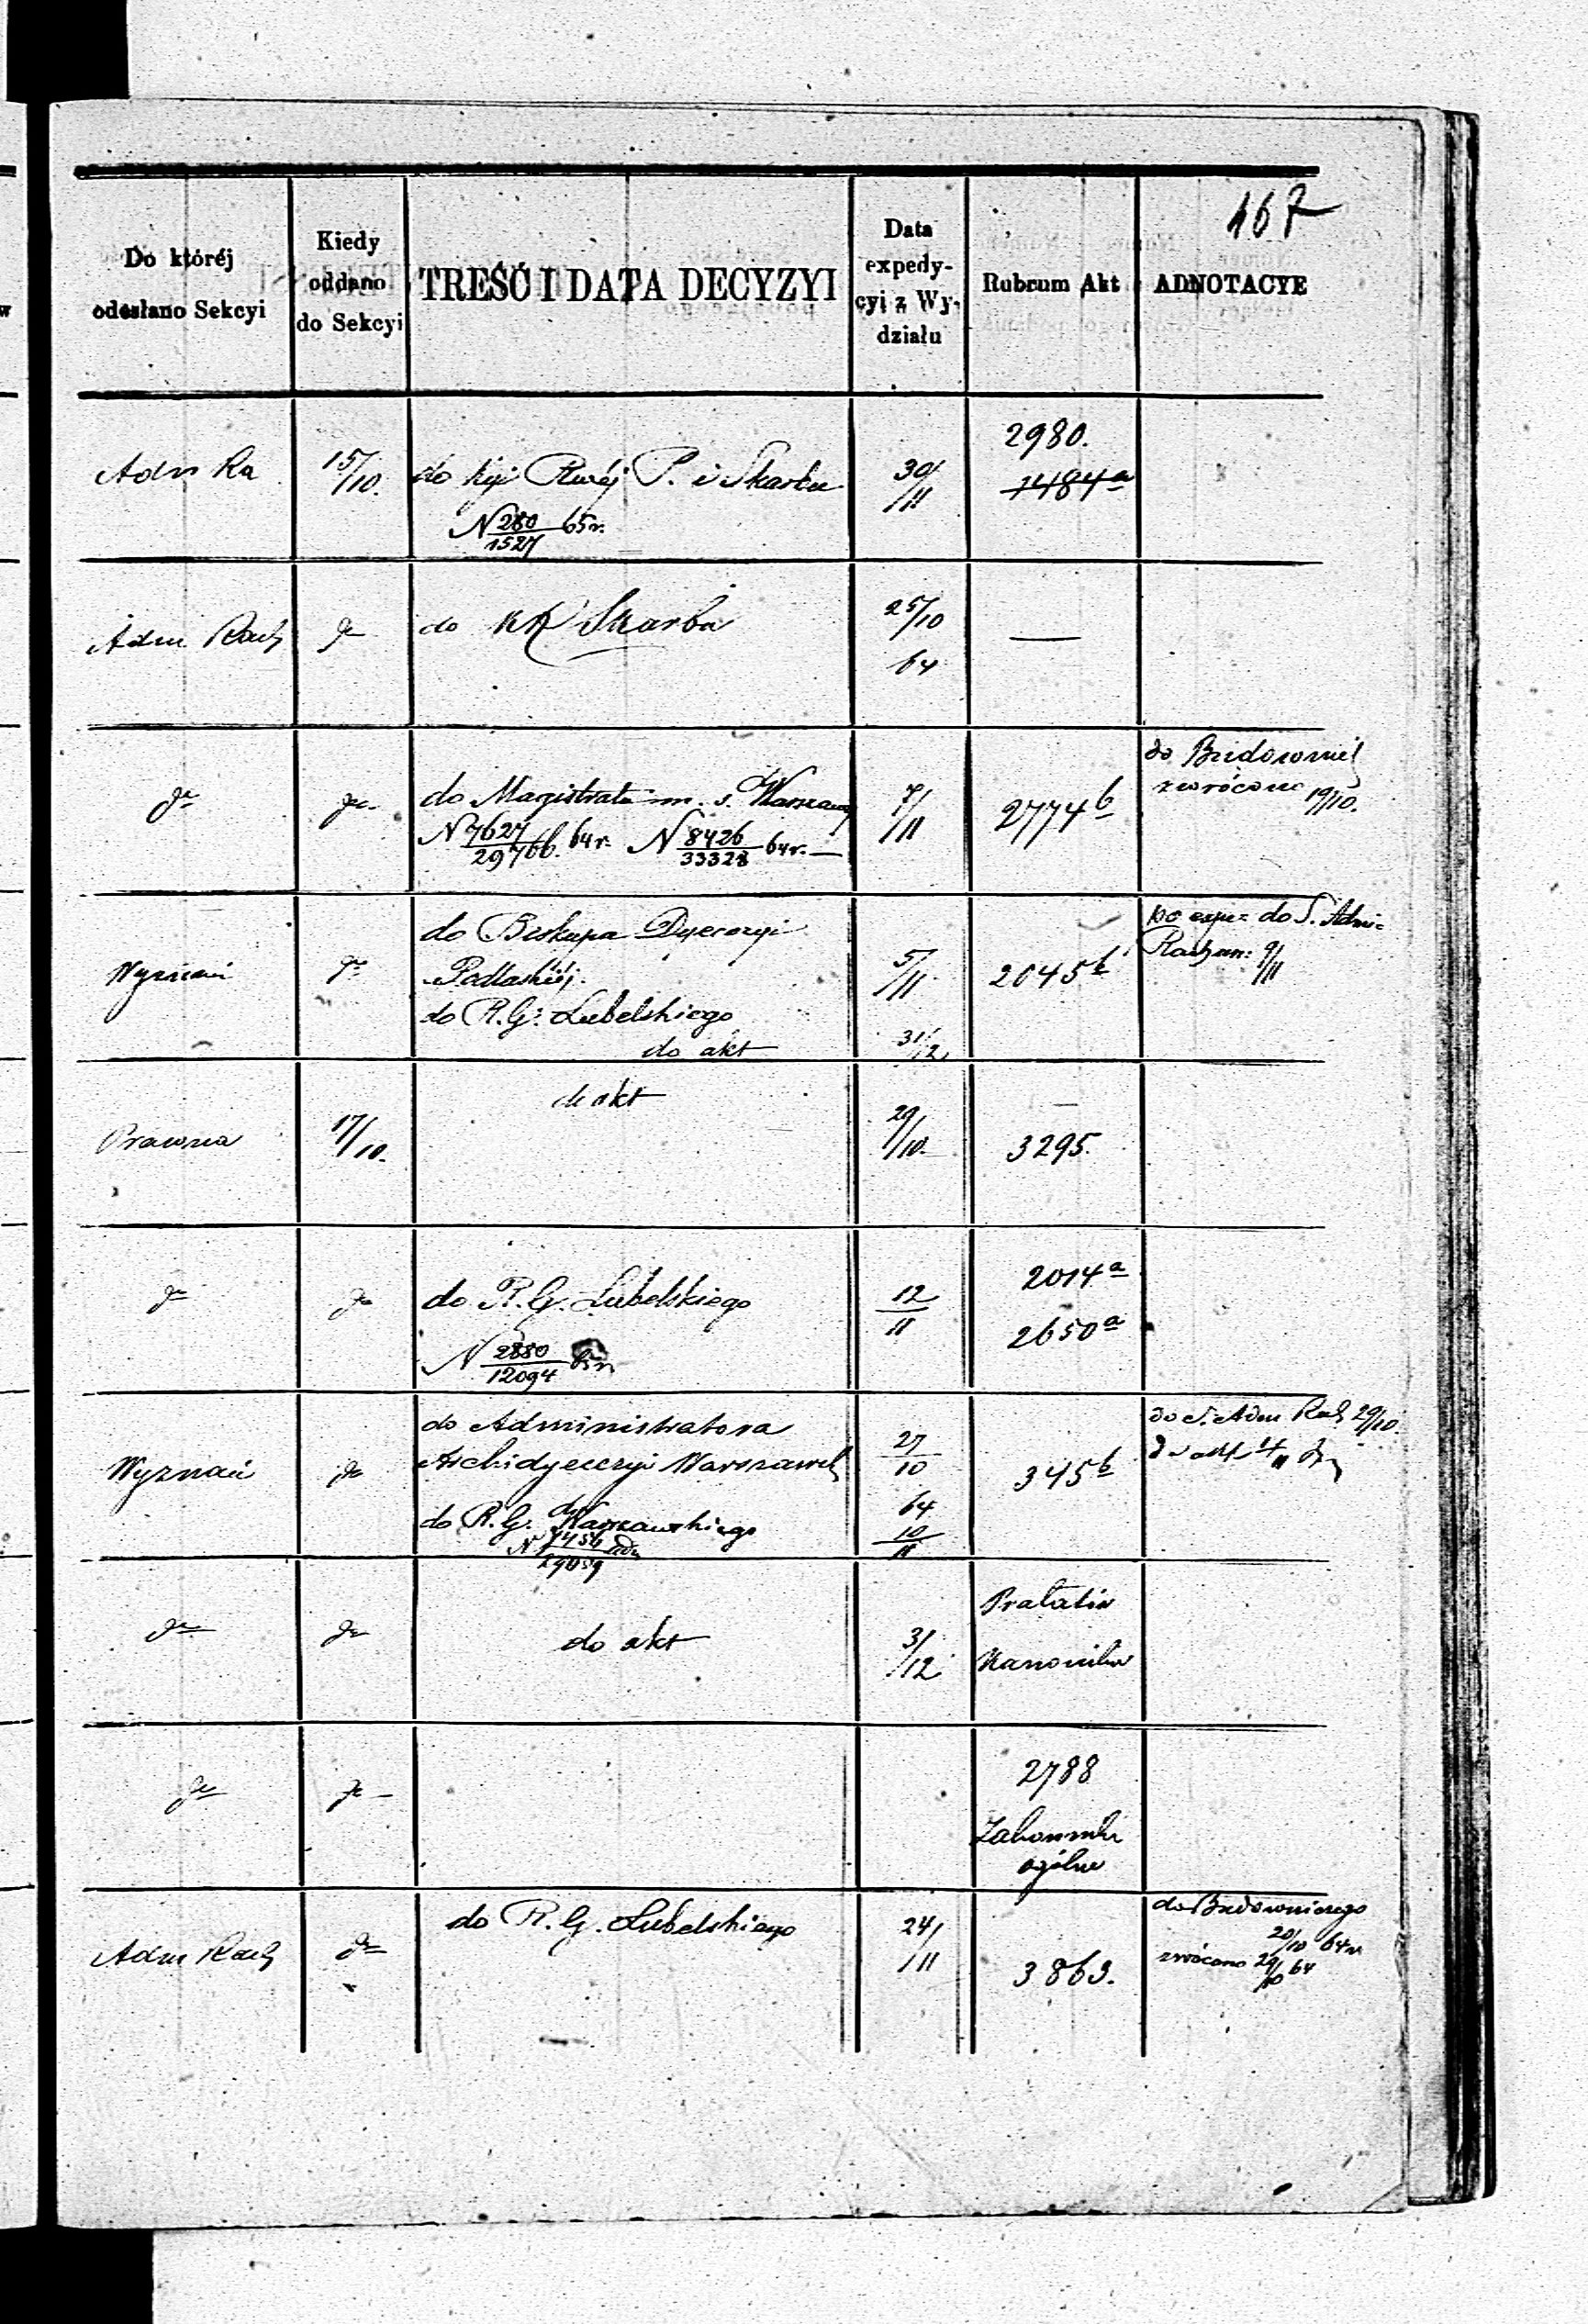 167
Do któréj
odesłano Sekcyi
Kiedy
oddano
do Sekcyi
TREŚĆ I DATA DECYZYI
Data
expedy-
cyi z Wy-
działu
Rubrum Akt
ADNOTACYE
Adm Ra
15/10.
do Kyi Rząéj P. i Skarbu
N 280/1527 65 r.
30/11
2980.
1484 a
Adm Rach
do
do KR Skarbu
25/10
64
—
do
do
do Magistratu m. s. Warszawy
N 7627/29766. 64 r. N 8426/33328 64 r. —
7/11
2774 b
do Budowniczego
zwrócono 19/10.
Wyznań
do
do Biskupa Dyecezyi
Podlaskiéj.
do R. G. Lubelskiego
do akt
5/11
31/12
2045 b
po expe= do S. Admi=
Rachun: 9/11
Prawna
17/10.
do akt
29/10.
3295.
do
do
do R. G. Lubelskiego
N 2880/12094 65 r.
12/11
2014 a
2650 a
Wyznań
do
do Administratora
Archidyecezyi Warszawsk
do R. G. Warszawskiego
N 7456/29059
27/10
64
10/11
345 b
do S. Adm Rach 29/10.
do akt
do
do
do akt
3/12
Prałatów
Kanoników
do
do
2788
Zakonnicze
ogólne
Adm Rach
do
do R. G. Lubelskiego
24/11
3863.
do Budowniczego
20/10 64 r
zwrócono 29/10 64